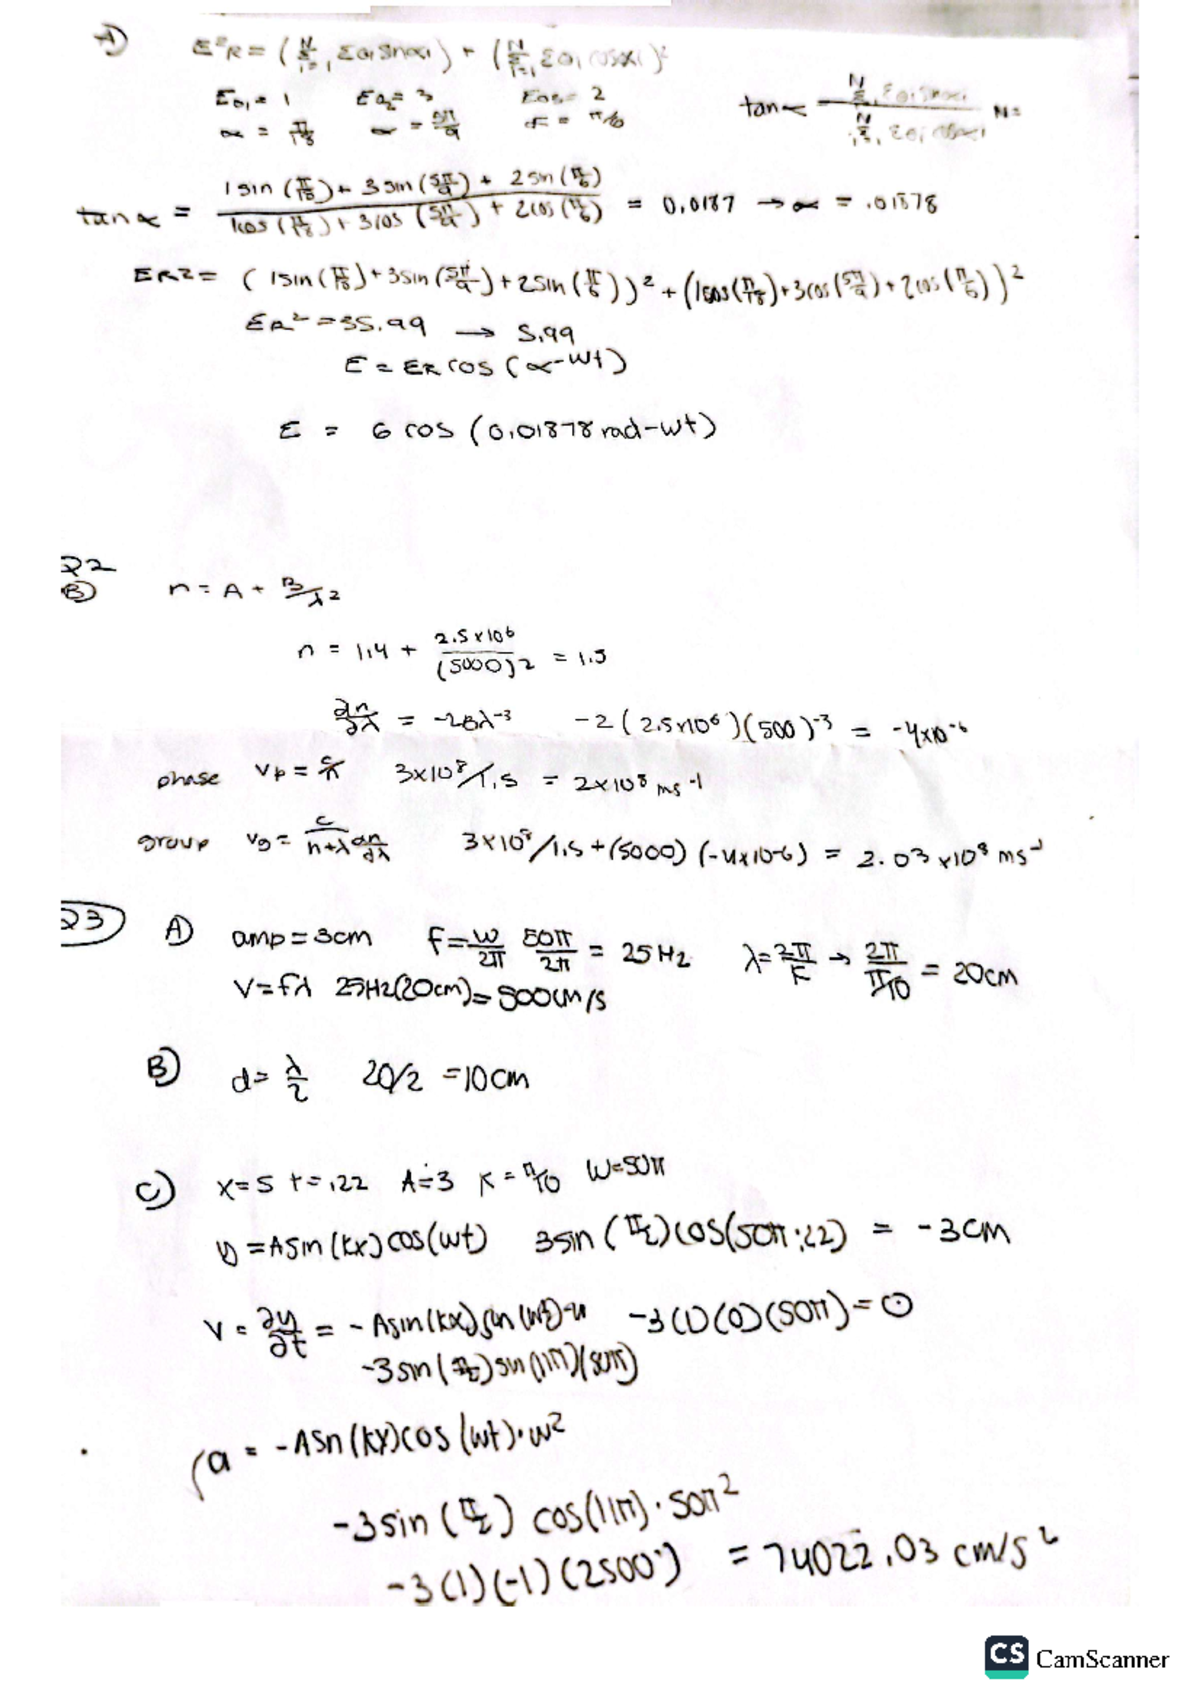 A) E²R = (N Σ i=1, Eoi Sinαi) + (N Σ i=1, Eoi cosαi)²
Eo1 = 1 Eo2 = 3 Eo3 = 2
α = π/18 α = 5π/9 α = π/6
tanα = N Σ, Eoi Sinαi / N Σ i=1, Eoi cosαi N=
tanα = 1sin(π/18) + 3sin(5π/9) + 2sin(π/6) / 1cos(π/18) + 3cos(5π/9) + 2cos(π/6) = 0.0187 → α = .01878
ER2 = (1sin(π/18) + 3sin(5π/9) + 2sin(π/6))² + (1cos(π/18) + 3cos(5π/9) + 2cos(π/6))²
ER² = 35.99 → 5.99
E = ER cos(α-wt)
E = 6 cos (0.01878 rad-wt)
Q2
B) n = A + B/λ2
n = 1.4 + 2.5x10⁶/(5000)2 = 1.5
∂n/∂λ = -2Bλ⁻³ -2(2.5x10⁶)(500)⁻³ = -4x10⁻⁶
phase Vp = c/n 3x10⁸/1.5 = 2x10⁸ ms⁻¹
group vg = c/n+λ dn/dλ 3x10⁸/1.5+(5000)(-4x10-6) = 2.03x10⁸ ms⁻¹
Q3 A) amp = 3cm f = w/2π 50π/2π = 25Hz λ = 2π/K → 2π/π/10 = 20cm
V = fλ 25Hz(20cm) = 500cm/s
B) d = λ/2 20/2 = 10cm
C) x=5 t=.22 A=3 K = π/10 W=50π
y = Asin(kx)cos(wt) 3sin(π/2)cos(50π·.22) = -3cm
V = ∂y/∂t = -Asin(kx)sin(wt)·w -3(1)(0)(50π) = 0
-3sin(π/2)sin(11π)(50π)
a = -ASin(kx)cos(wt)·w²
-3sin(π/2) cos(11π)·50π²
-3(1)(-1)(2500) = 74022.03 cm/s²
CS CamScanner